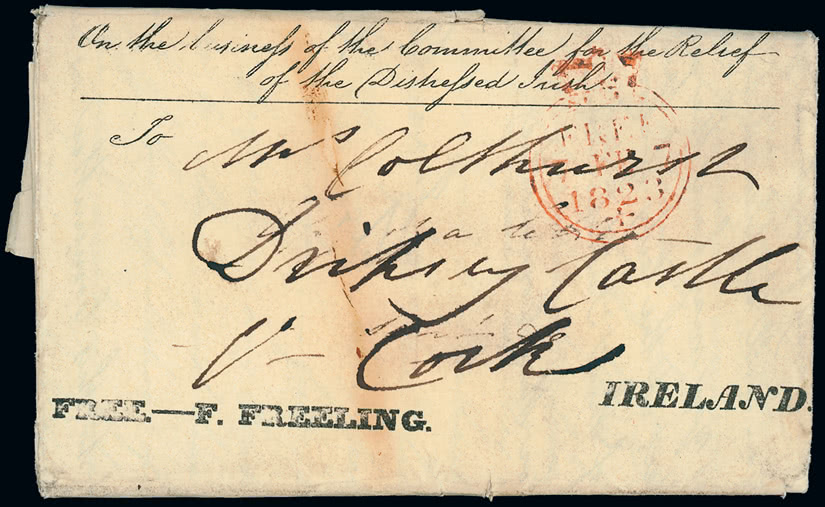 On the business of the Committee for the Relief
of the Distressed Irish
To Mrs Colthurst
FREE
7 FE 7
1823
Dripsey Castle
Cork
FREE.—F. FREELING.
IRELAND.